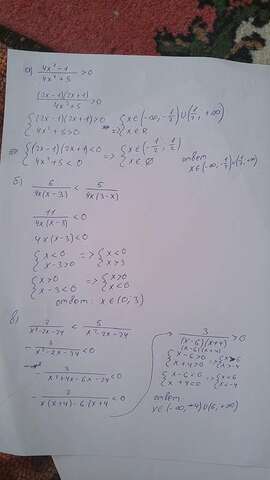 а) (4x² - 1)/(4x² + 5) > 0
(2x-1)(2x+1)/(4x²+5) > 0
{(2x-1)(2x+1)>0 => {x∈(-∞,-1/2)∪(1/2,+∞)
{4x²+5>0 => {x∈R
=> {(2x-1)(2x+1)<0 => {x∈(-1/2;1/2)
{4x²+5<0 => {x∈∅
ответ
x∈(-∞,-1/2)∪(1/2,+∞)
б) 6/(4x(x-3)) < 5/(4x(3-x))
11/(4x(x-3)) < 0
4x(x-3)<0
{x<0 => {x<0
{x-3>0 => {x>3
{x>0 => {x>0
{x-3<0 => {x<3
ответ: x∈(0,3)
в) 2/(x²-2x-24) < 5/(x²-2x-24)
- 3/(x²-2x-24) < 0
- 3/(x²+4x-6x-24) < 0
- 3/(x(x+4)-6(x+4)) < 0
3/((x-6)(x+4)) > 0
(x-6)(x+4)
{x-6>0 => {x>6
{x+4>0 => {x>-4
{x-6<0 => {x<6
{x+4<0 => {x<-4
ответ
x∈(-∞,-4)∪(6,+∞)